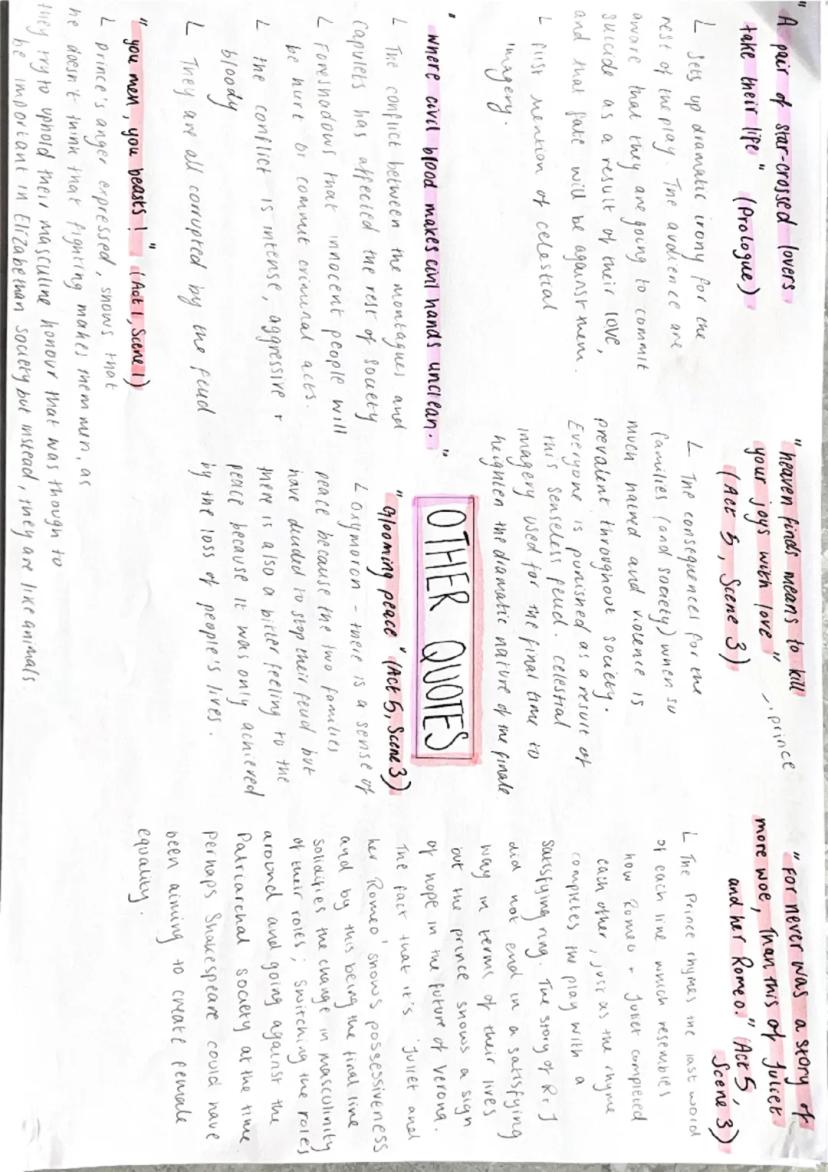 "A pair of star-crossed lovers
take their life" (Prologue)
L Sets up dramatic irony for the
rest of the play. The audience are
aware that they are going to commit
suicide as a result of their love,
and that fate will be against them.
L First mention of celestial
imagery.
"heaven finds means to kill
your joys with love"
(Act 5, Scene 3)
prince
L The consequences for the
families (and society) when so
much hatred and violence is
prevalent throughout society.
Everyone is punished as a result of
this senseless feud. celestial
imagery used for the final time to
heighten the dramatic nature of the finale
"For never was a story of
more woe, Than this of Juliet
and her Romeo." (Act 5,
Scene 3)
L The Prince rhymes the last word
of each line which resembles
how Romeo + Juliet completed
each other, just as the rhyme
completes the play with a
satisfying ring. The story of R+J
did not end in a satisfying
way in terms of their lives
but the prince shows a sign
of hope in the future of Verona.
The fact that it's 'Juliet and
her Romeo' shows possessiveness
and by this being the final line
solidifies the change in masculinity
of their roles; switching the roles
around and going against the
Patriarchal society at the time
perhaps Shakespeare could have
been aiming to create female
equality.
"where civil blood makes civil hands unclean."
L The conflict between the montagues and
capulets has affected the rest of society
L Foreshadows that innocent people will
be hurt or commit criminal acts.
L the conflict is intense, aggressive +
bloody
L They are all corrupted by the feud
OTHER QUOTES
"Glooming peace" (Act 5, Scene 3)
L Oxymoron - there is a sense of
peace because the two families
have decided to stop their feud but
there is also a bitter feeling to the
peace because it was only achieved
by the loss of people's lives.
"you men, you beasts!" (Act 1, Scene 1)
L prince's anger expressed, shows that
he doesn't think that fighting makes them men, as
they try to uphold their masculine honour that was though to
be important in Elizabethan society but instead, they are like animals.